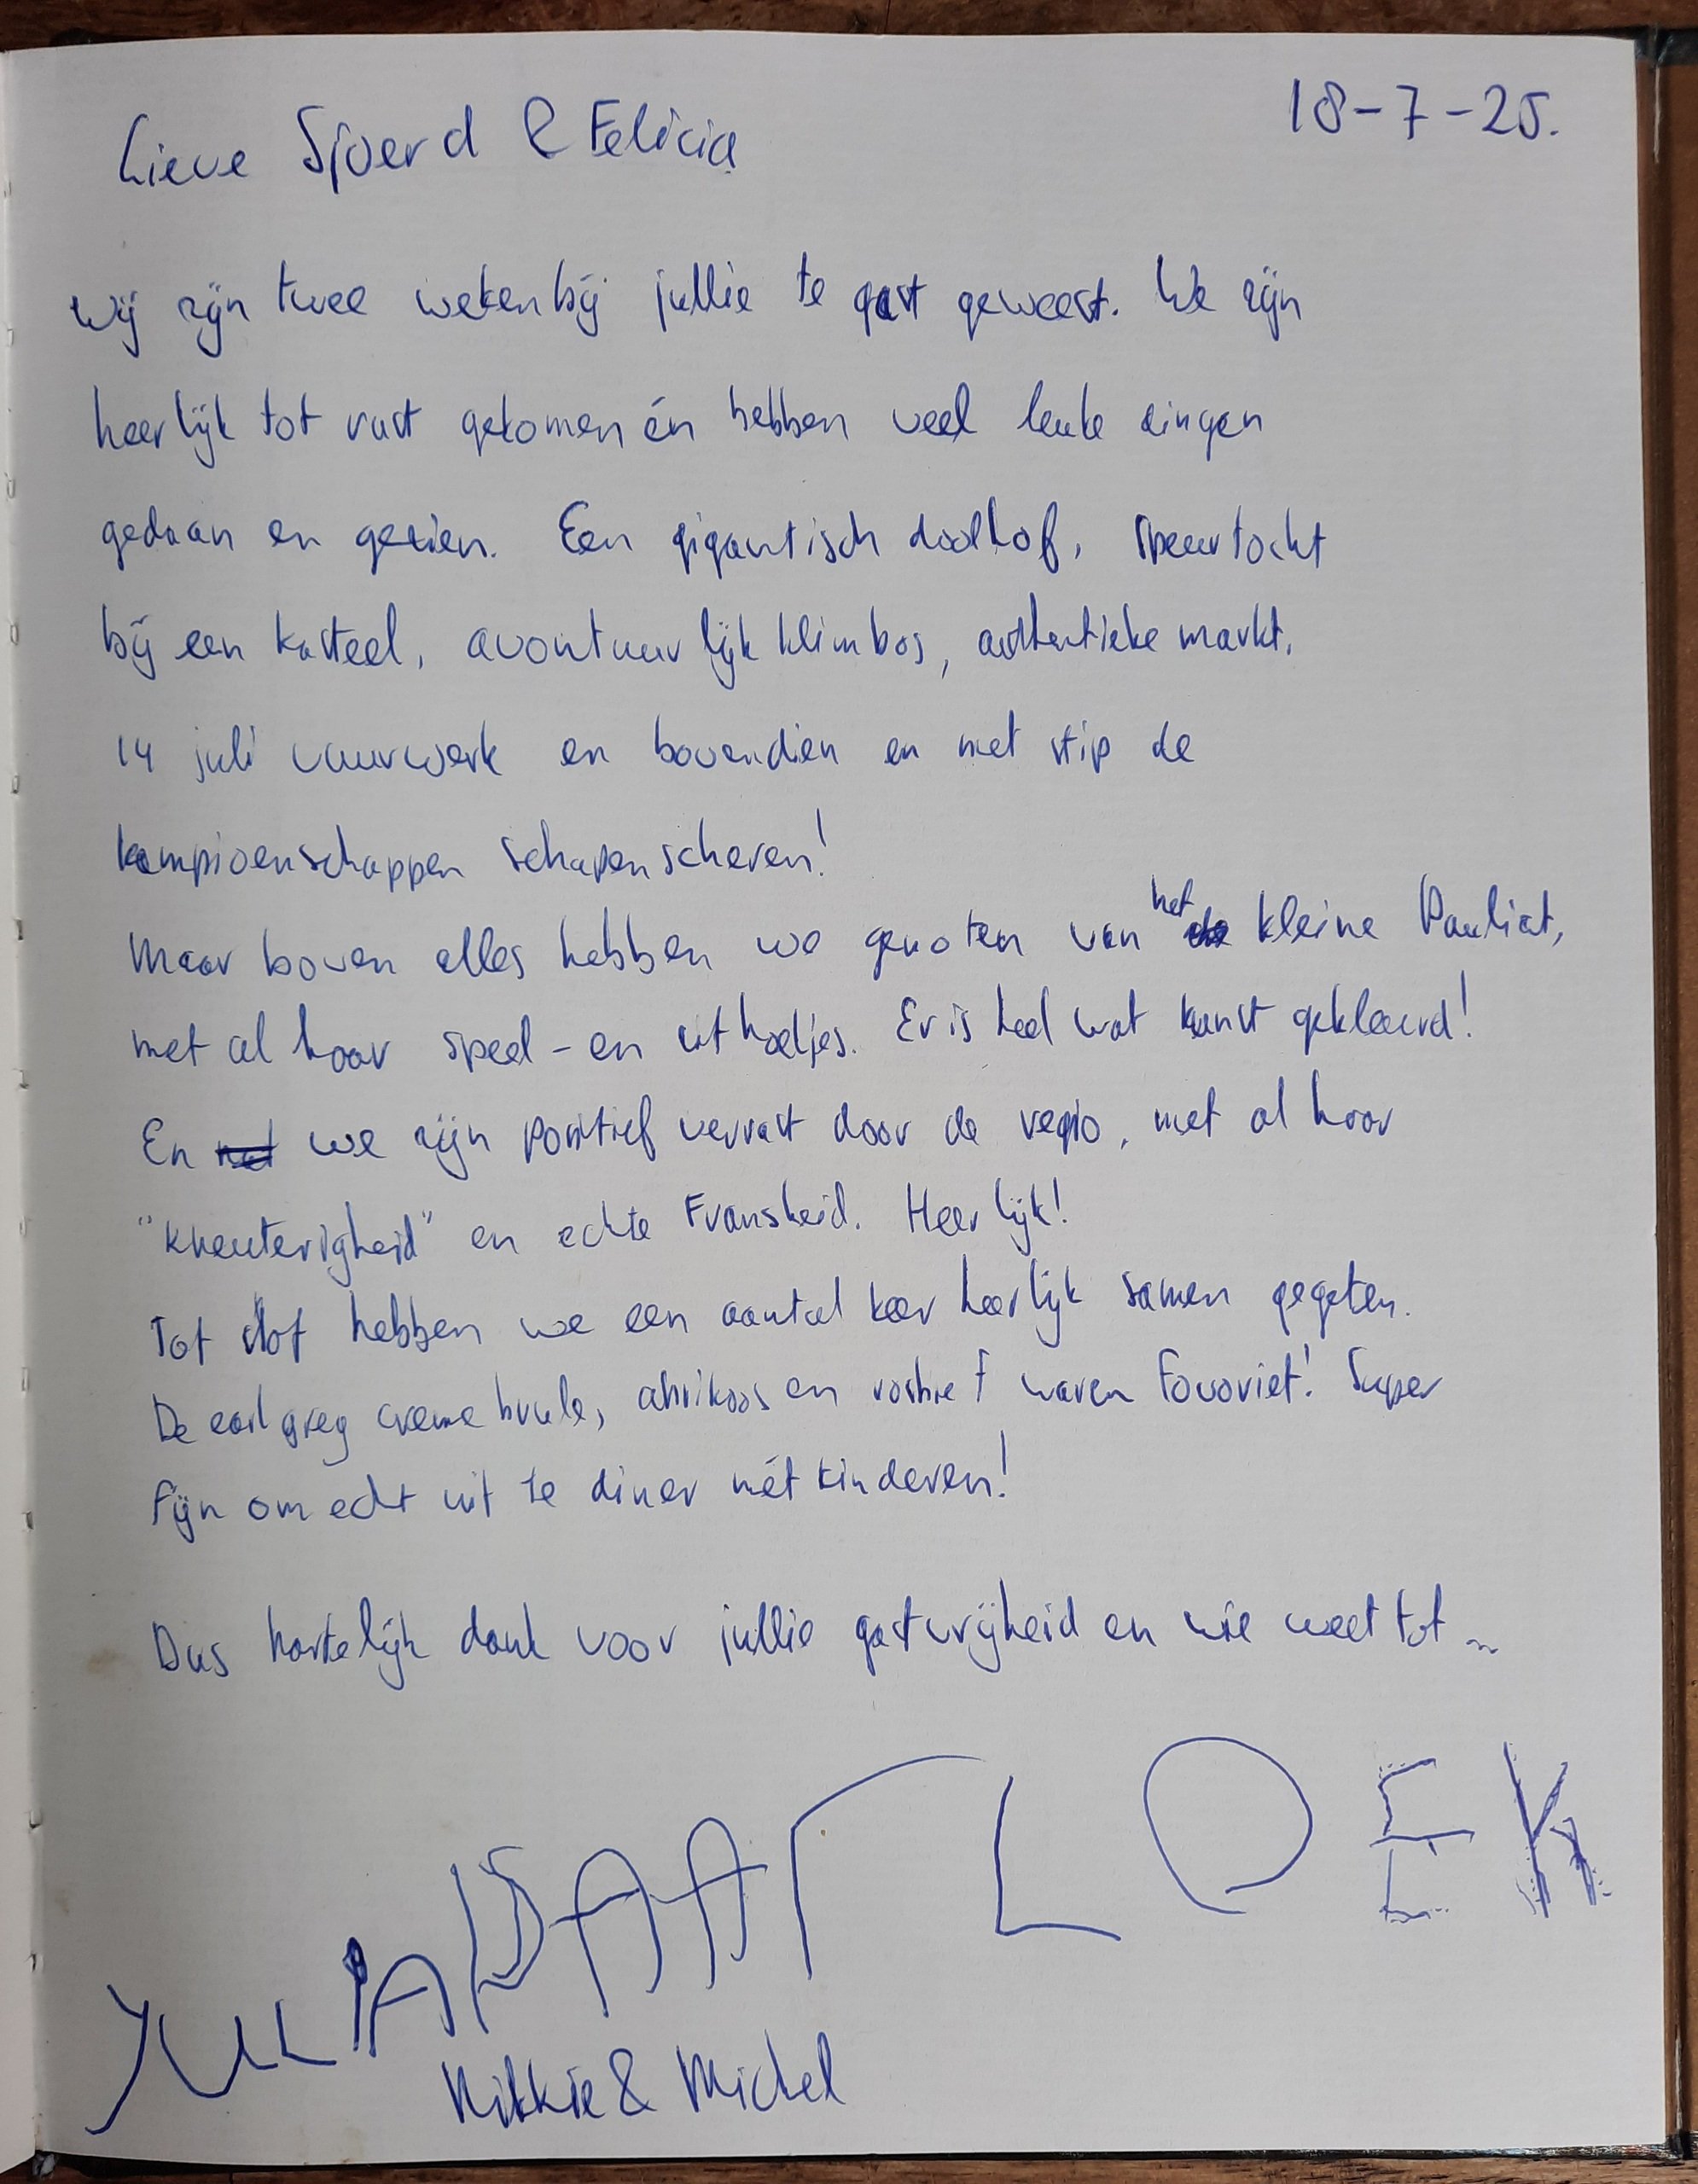 18-7-25.
Lieve Sjoerd & Felicia
Wij zijn twee weken bij jullie te gast geweest. We zijn
heerlijk tot rust gekomen én hebben veel leuke dingen
gedaan en gezien. Een gigantisch doolhof, speurtocht
bij een kasteel, avontuurlijk klimbos, authentieke markt,
14 juli vuurwerk en bovendien en met stip de
kampioenschappen schapenscheren!
Maar boven alles hebben we genoten van het kleine Pauliat,
met al haar speel-en uithoekjes. Er is heel wat kunst gekleurd!
En we zijn positief verrast door de regio, met al haar
"kneuterigheid" en echte Fransheid. Heerlijk!
Tot slot hebben we een aantal keer heerlijk samen gegeten.
De earl grey creme brule, abrikoos en rosbief waren favoriet! Super
fijn om echt uit te diner mét kinderen!
Dus hartelijk dank voor jullie gastvrijheid en wie weet tot ...
LOEK
Nikkie & Michel